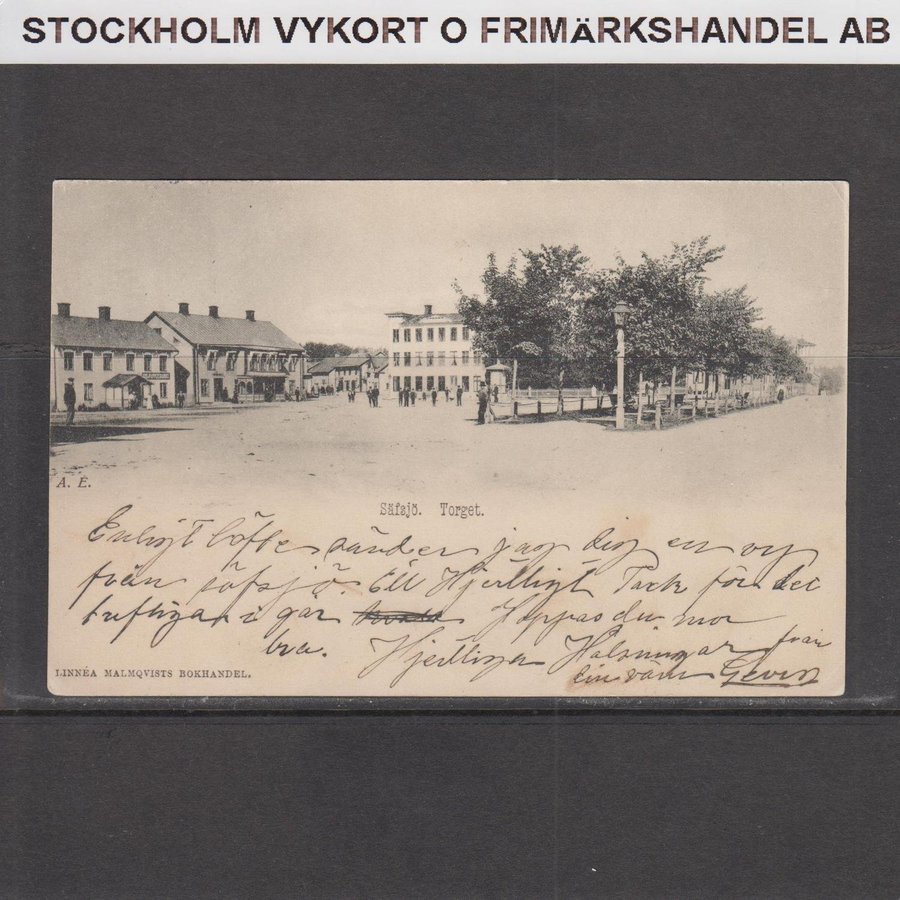 STOCKHOLM VYKORT O FRIMÄRKSHANDEL AB
A. E.
Säfsjö. Torget.
Enligt löfte sänder jag dig en vy
från söfsjö. Ett Hjertligt Tack för det
i går Hoppas du mor
bra. Hjertliga Helsningar från
din vän
LINNÉA MALMQVISTS BOKHANDEL.